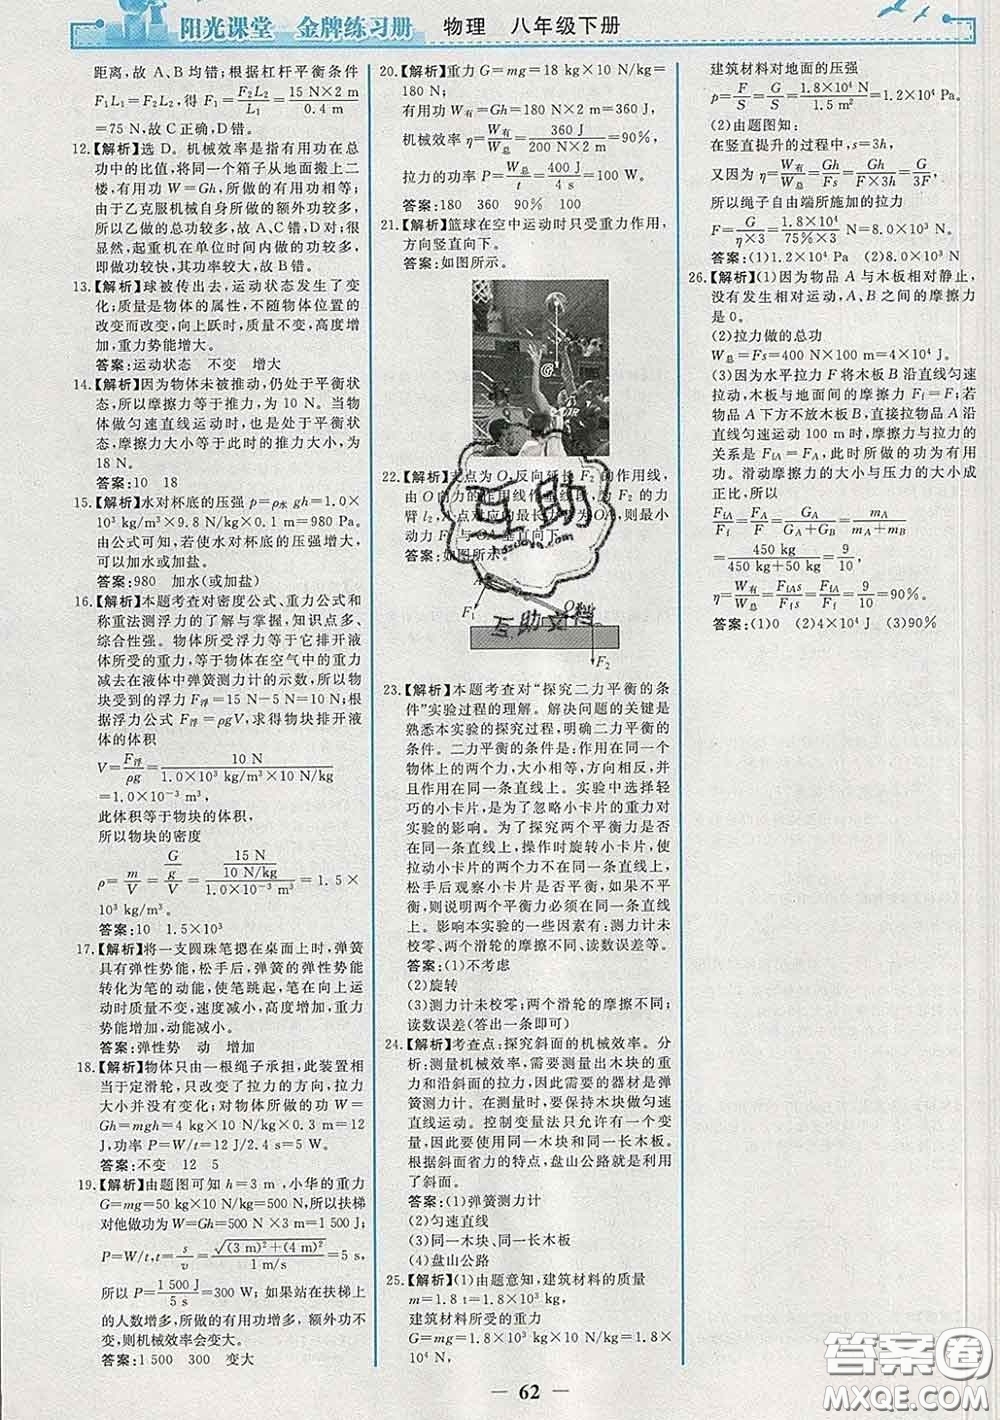 阳光课堂 金牌练习册 物理 八年级下册
距离,故 A、B均错;根据杠杆平衡条件
F₁L₁=F₂L₂,得 F₁=F₂L₂/L₁=15 N×2 m/0.4 m
=75 N,故 C正确,D错。
12.【解析】选 D。机械效率是指有用功在总
功中的比值,将同一个箱子从地面搬上二
楼,有用功 W=Gh,所做的有用功相等;
由于乙克服机械自身所做的额外功较多,
所以乙做的总功较多,故 A、C错,D对;很
显然,起重机在单位时间内做的功较多,
即做功较快,其功率较大,故 B错。
13.【解析】球被传出去,运动状态发生了变
化;质量是物体的属性,不随物体位置的
改变而改变,向上跃时,质量不变,高度增
加,重力势能增大。
答案:运动状态 不变 增大
14.【解析】因为物体未被推动,仍处于平衡状
态,所以摩擦力等于推力,为 10 N。当物
体做匀速直线运动时,也是处于平衡状
态,摩擦力大小等于此时的推力大小,为
18 N。
答案:10 18
15.【解析】水对杯底的压强 p=ρ水gh=1.0×
10³ kg/m³×9.8 N/kg×0.1 m=980 Pa。
由公式可知,若使水对杯底的压强增大,
可以加水或加盐。
答案:980 加水(或加盐)
16.【解析】本题考查对密度公式、重力公式和
称重法测浮力的了解与掌握,知识点多、
综合性强。物体所受的浮力等于它排开
液体所受的重力,等于物体在空气中的重
力减去在液体中弹簧测力计的示数,所以物
块受到的浮力 F浮=15 N-5 N=10 N;
根据浮力公式 F浮=ρgV,求得物块排开液
体的体积
V=F浮/ρg=10 N/(1.0×10³ kg/m³×10 N/kg)
=1.0×10⁻³ m³,
此体积等于物块的体积,
所以物块的密度
ρ=m/V=(G/g)/V=(15 N/10 N/kg)/(1.0×10⁻³ m³)=1.5×
10³ kg/m³。
答案:10 1.5×10³
17.【解析】将一支圆珠笔摁在桌面上时,弹簧
具有弹性势能,松手后,弹簧的弹性势能
转化为笔的动能,使笔跳起,笔在向上运
动时质量不变,速度减小,高度增加,重力
势能增加,动能减小。
答案:弹性势 动 增加
18.【解析】物体只由一根绳子承担,此装置相
当于定滑轮,只改变了拉力的方向,拉力
大小并没有变化;对物体所做的功 W=
Gh=mgh=4 kg×10 N/kg×0.3 m=12
J,功率 P=W/t=12 J/2.4 s=5 W。
答案:不变 12 5
19.【解析】由题图可知 h=3 m,小华的重力
G=mg=50 kg×10 N/kg=500 N,所以扶梯
对他做功为 W=Gh=500 N×3 m=1 500 J;
P=W/t,t=s/v=√((3 m)²+(4 m)²)/1 m/s=5 s,
所以 P=1 500 J/5 s=300 W;如果站在扶梯上
的人数增多,所做的有用功增多,额外功不
变,则机械效率会变大。
答案:1 500 300 变大
20.【解析】重力 G=mg=18 kg×10 N/kg=
180 N;
有用功 W有=Gh=180 N×2 m=360 J,
机械效率 η=W有/W总=360 J/(200 N×2 m)=90%,
拉力的功率 P=W总/t=400 J/4 s=100 W。
答案:180 360 90% 100
21.【解析】篮球在空中运动时只受重力作用,
方向竖直向下。
答案:如图所示。
G
22.【解析】支点为 O,反向延长 F₂的作用线,
由 O向力的作用线作垂线段,为 F₂的力
臂 l₂,A点对应的最长力臂为OA,则最小
动力 F₁与 OA垂直向下。
答案:如图所示。
A
F₁
O
F₂
23.【解析】本题考查对“探究二力平衡的条
件”实验过程的理解。解决问题的关键是
熟悉本实验的探究过程,明确二力平衡的
条件。二力平衡的条件是:作用在同一个
物体上的两个力,大小相等,方向相反,并
且作用在同一条直线上。实验中选择轻
巧的小卡片,是为了忽略小卡片的重力对
实验的影响。为了探究两个平衡力是否
在同一条直线上,操作时旋转小卡片,使
拉动小卡片的两个力不在同一条直线上,
松手后观察小卡片是否平衡,如果不平
衡,则说明两个平衡力必须在同一条直线
上。影响本实验的一些因素有:测力计未
校零、两个滑轮的摩擦不同、读数误差等。
答案:(1)不考虑
(2)旋转
(3)测力计未校零;两个滑轮的摩擦不同;
读数误差(答出一条即可)
24.【解析】考查点:探究斜面的机械效率。分
析:测量机械效率,需要测量出木块的重
力和沿斜面的拉力,因此需要的器材是弹
簧测力计。在测量时,要保持木块做匀速
直线运动。控制变量法只允许有一个变
量,因此要使用同一木块和同一长木板。
根据斜面省力的特点,盘山公路就是利用
了斜面。
答案:(1)弹簧测力计
(2)匀速直线
(3)同一木块、同一长木板
(4)盘山公路
25.【解析】(1)由题意知,建筑材料的质量
m=1.8 t=1.8×10³ kg,
建筑材料所受的重力
G=mg=1.8×10³ kg×10 N/kg=1.8×
10⁴ N,
建筑材料对地面的压强
p=F/S=G/S=1.8×10⁴ N/1.5 m²=1.2×10⁴ Pa。
(2)由题图知:
在竖直提升的过程中,s=3h,
又因为 η=W有/W总=Gh/Fs=Gh/(F×3h)=G/3F,
所以绳子自由端所施加的拉力
F=G/(η×3)=1.8×10⁴/(75%×3) N=8.0×10³ N。
答案:(1)1.2×10⁴ Pa (2)8.0×10³ N
26.【解析】(1)因为物品 A与木板相对静止,
没有发生相对运动,A、B之间的摩擦力
是 0。
(2)拉力做的总功
W总=Fs=400 N×100 m=4×10⁴ J。
(3)因为水平拉力 F将木板 B沿直线匀速
拉动,木板与地面间的摩擦力 Ff=F;若
物品 A下方不放木板 B,直接拉物品 A沿
直线匀速运动 100 m时,摩擦力与拉力的
关系是 FfA=FA,此时拉力做的功为有用
功。滑动摩擦力的大小与压力的大小成
正比,所以
FfA/Ff=FA/F=GA/(GA+GB)=mA/(mA+mB)
=450 kg/(450 kg+50 kg)=9/10
η=W有/W总=FfAs/Ffs=FfA/Ff=9/10=90%。
答案:(1)0 (2)4×10⁴ J (3)90%
互助
互助文档
62
答案圈
MXQE.COM